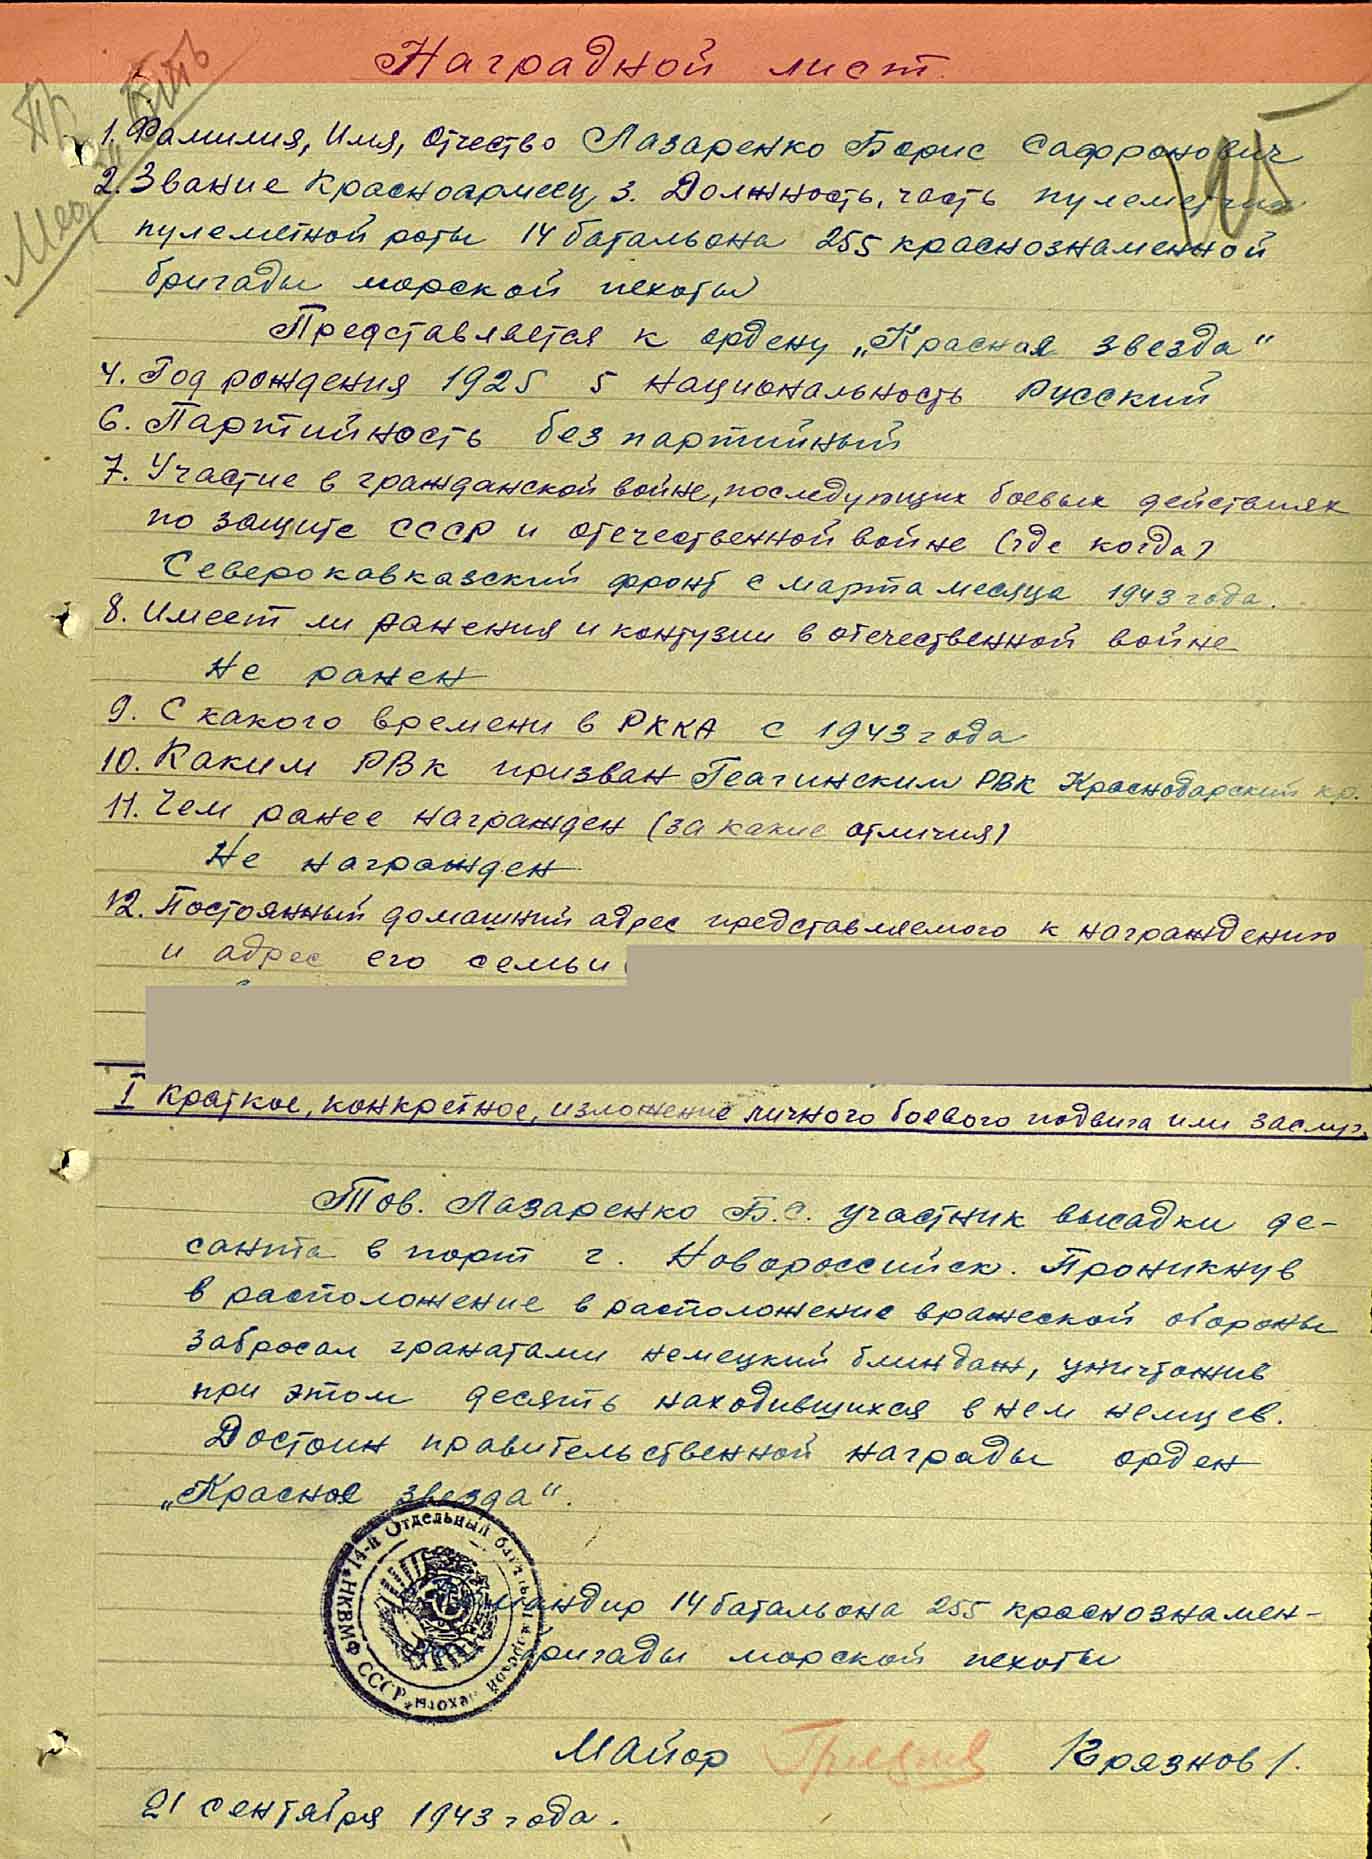 Наградной лист
1. Фамилия, Имя, Отчество Лазаренко Борис Сафронович
2. Звание Красноармеец 3. Должность, часть пулеметчик
пулеметной роты 14 батальона 255 краснознаменной
бригады морской пехоты
Представляется к ордену „Красная звезда"
4. Год рождения 1925 5 национальность Русский
6. Партийность без партийный
7. Участие в гражданской войне, последующих боевых действиях
по защите СССР и отечественной войне (где когда)
Северокавказский фронт с марта месяца 1943 года.
8. Имеет ли ранения и контузии в отечественной войне
Не ранен
9. С какого времени в РККА с 1943 года
10. Каким РВК призван РВК Краснодарский кр.
11. Чем ранее награжден (за какие отличия)
Не награжден
12. Постоянный домашний адрес представляемого к награждению
и адрес его семьи
I Краткое, конкретное, изложение личного боевого подвига или заслуг
Тов. Лазаренко Б.С. участник высадки де-
санта в порт г. Новороссийск. Проникнув
в расположение в расположение вражеской обороны
забросал гранатами немецкий блиндаж, уничтожив
при этом десять находившихся в нем немцев.
Достоин правительственной награды орден
„Красное звезда".
14-й Отдельный бат-н морской пехоты НКВМФ СССР
мандир 14 батальона 255 краснознамен-
бригады морской пехоты
Майор /Грязнов/.
21 сентября 1943 года.